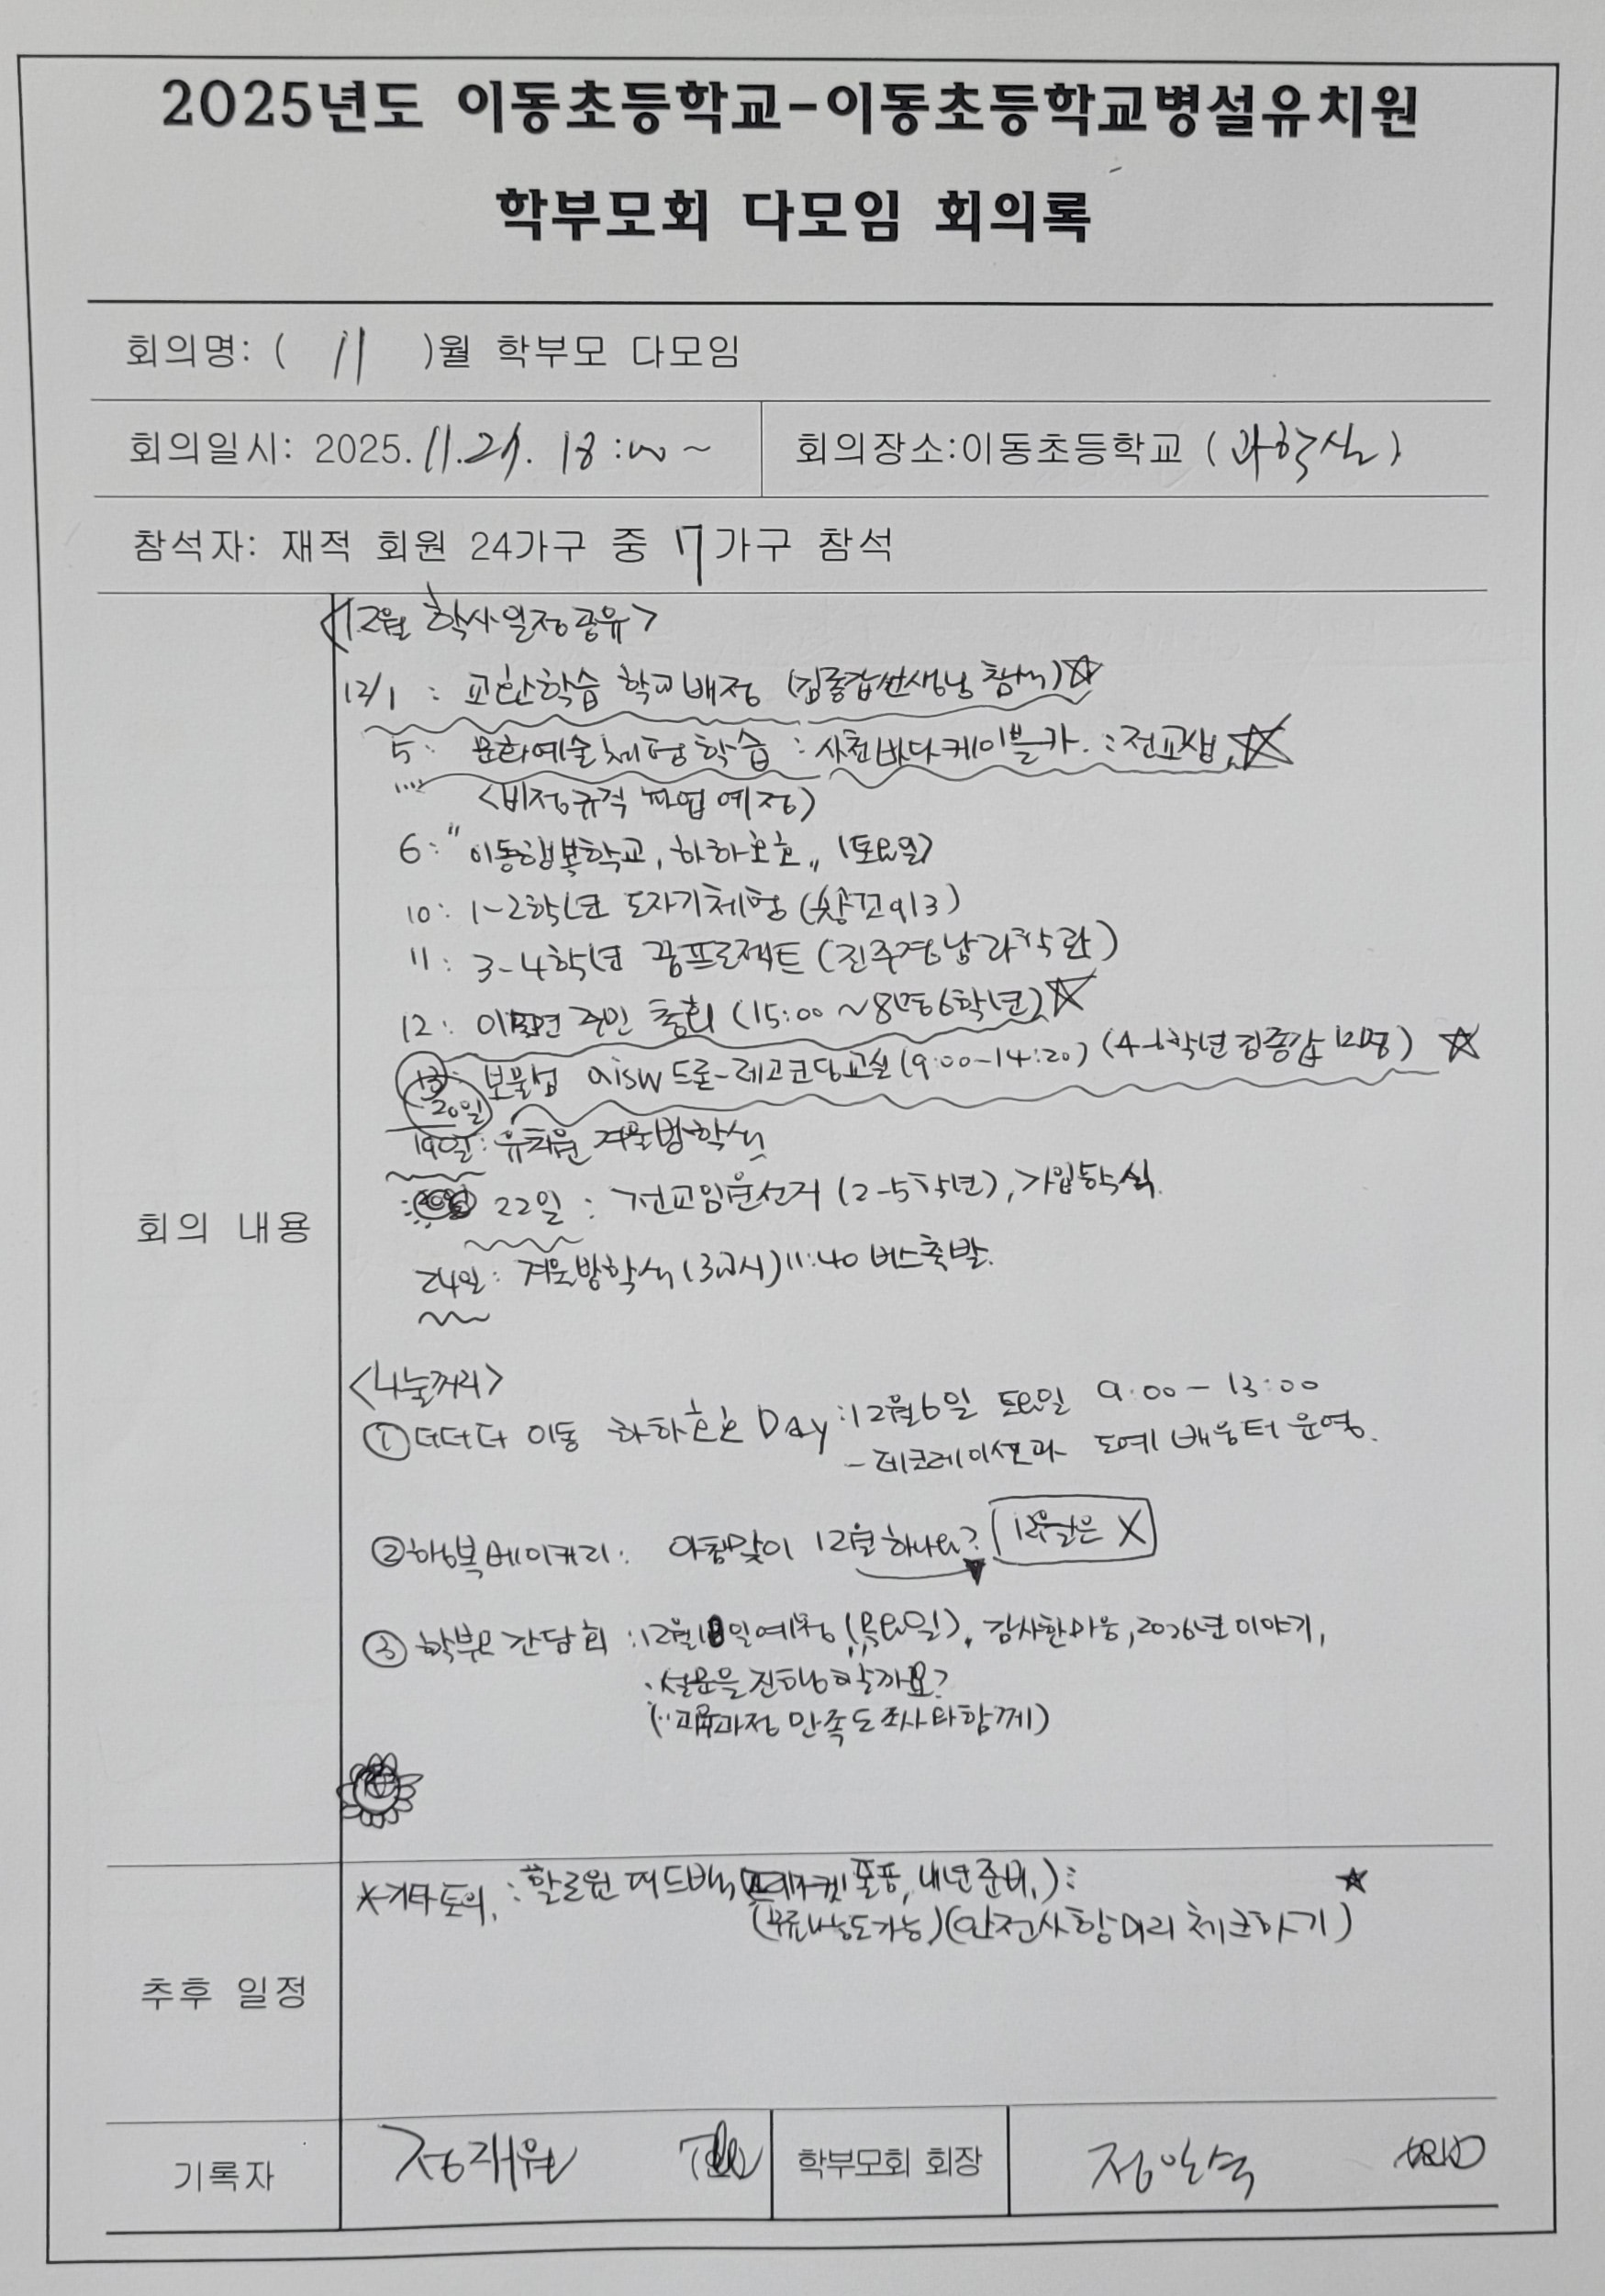 2025년도 이동초등학교-이동초등학교병설유치원
학부모회 다모임 회의록
회의명: ( 11 )월 학부모 다모임
회의일시: 2025. 11. 18:00 ~ 회의장소:이동초등학교 (과학실)
참석자: 재적 회원 24가구 중 7가구 참석
회의 내용
<12월 학사일정공유>
12/1 : 교환학습 학교배정 (김종갑선생님 참석)☆
5: 문화예술체험학습 : 사천바다케이블카. : 전교생,☆
<비정규직 파업 예정)
6: "이동행복학교, 하하호호" (토요일)
10: 1-2학년 도자기체험 (창꼬913)
11: 3-4학년 꿈프로젝트 (진주경남과학관)
12: 이동면 주민 총회 (15:00 ~ 6학년)☆
13 보물섬 aisw 드론-레고코딩교실 (9:00-14:20) (4-6학년 김종갑 12명) ☆
20일
19일: 유치원 겨울방학식
22일 : 전교임원선거 (2-5학년), 가입학식.
24일: 겨울방학식 (3교시) 11:40 버스출발.
<나눌꺼리>
① 더더더 이동 하하호호 Day :12월6일 토요일 9:00 - 13:00
- 데코레이션과 도예 배움터 운영.
② 행복베이커리: 아침맞이 12월 하나요? 12월은 X
③ 학부모 간담회 :12월18일예정 (목요일), 감사한마음, 2026년 이야기,
· 설문을 진행할까요?
(교육과정 만족도조사와함께)
추후 일정
*기타토의. : 할로윈 피드백 (프리마켓 풍풍, 내년준비.) : ☆
(무료나눔도가능) (안전사항 미리 체크하기)
기록자 정재원 학부모회 회장 정인숙